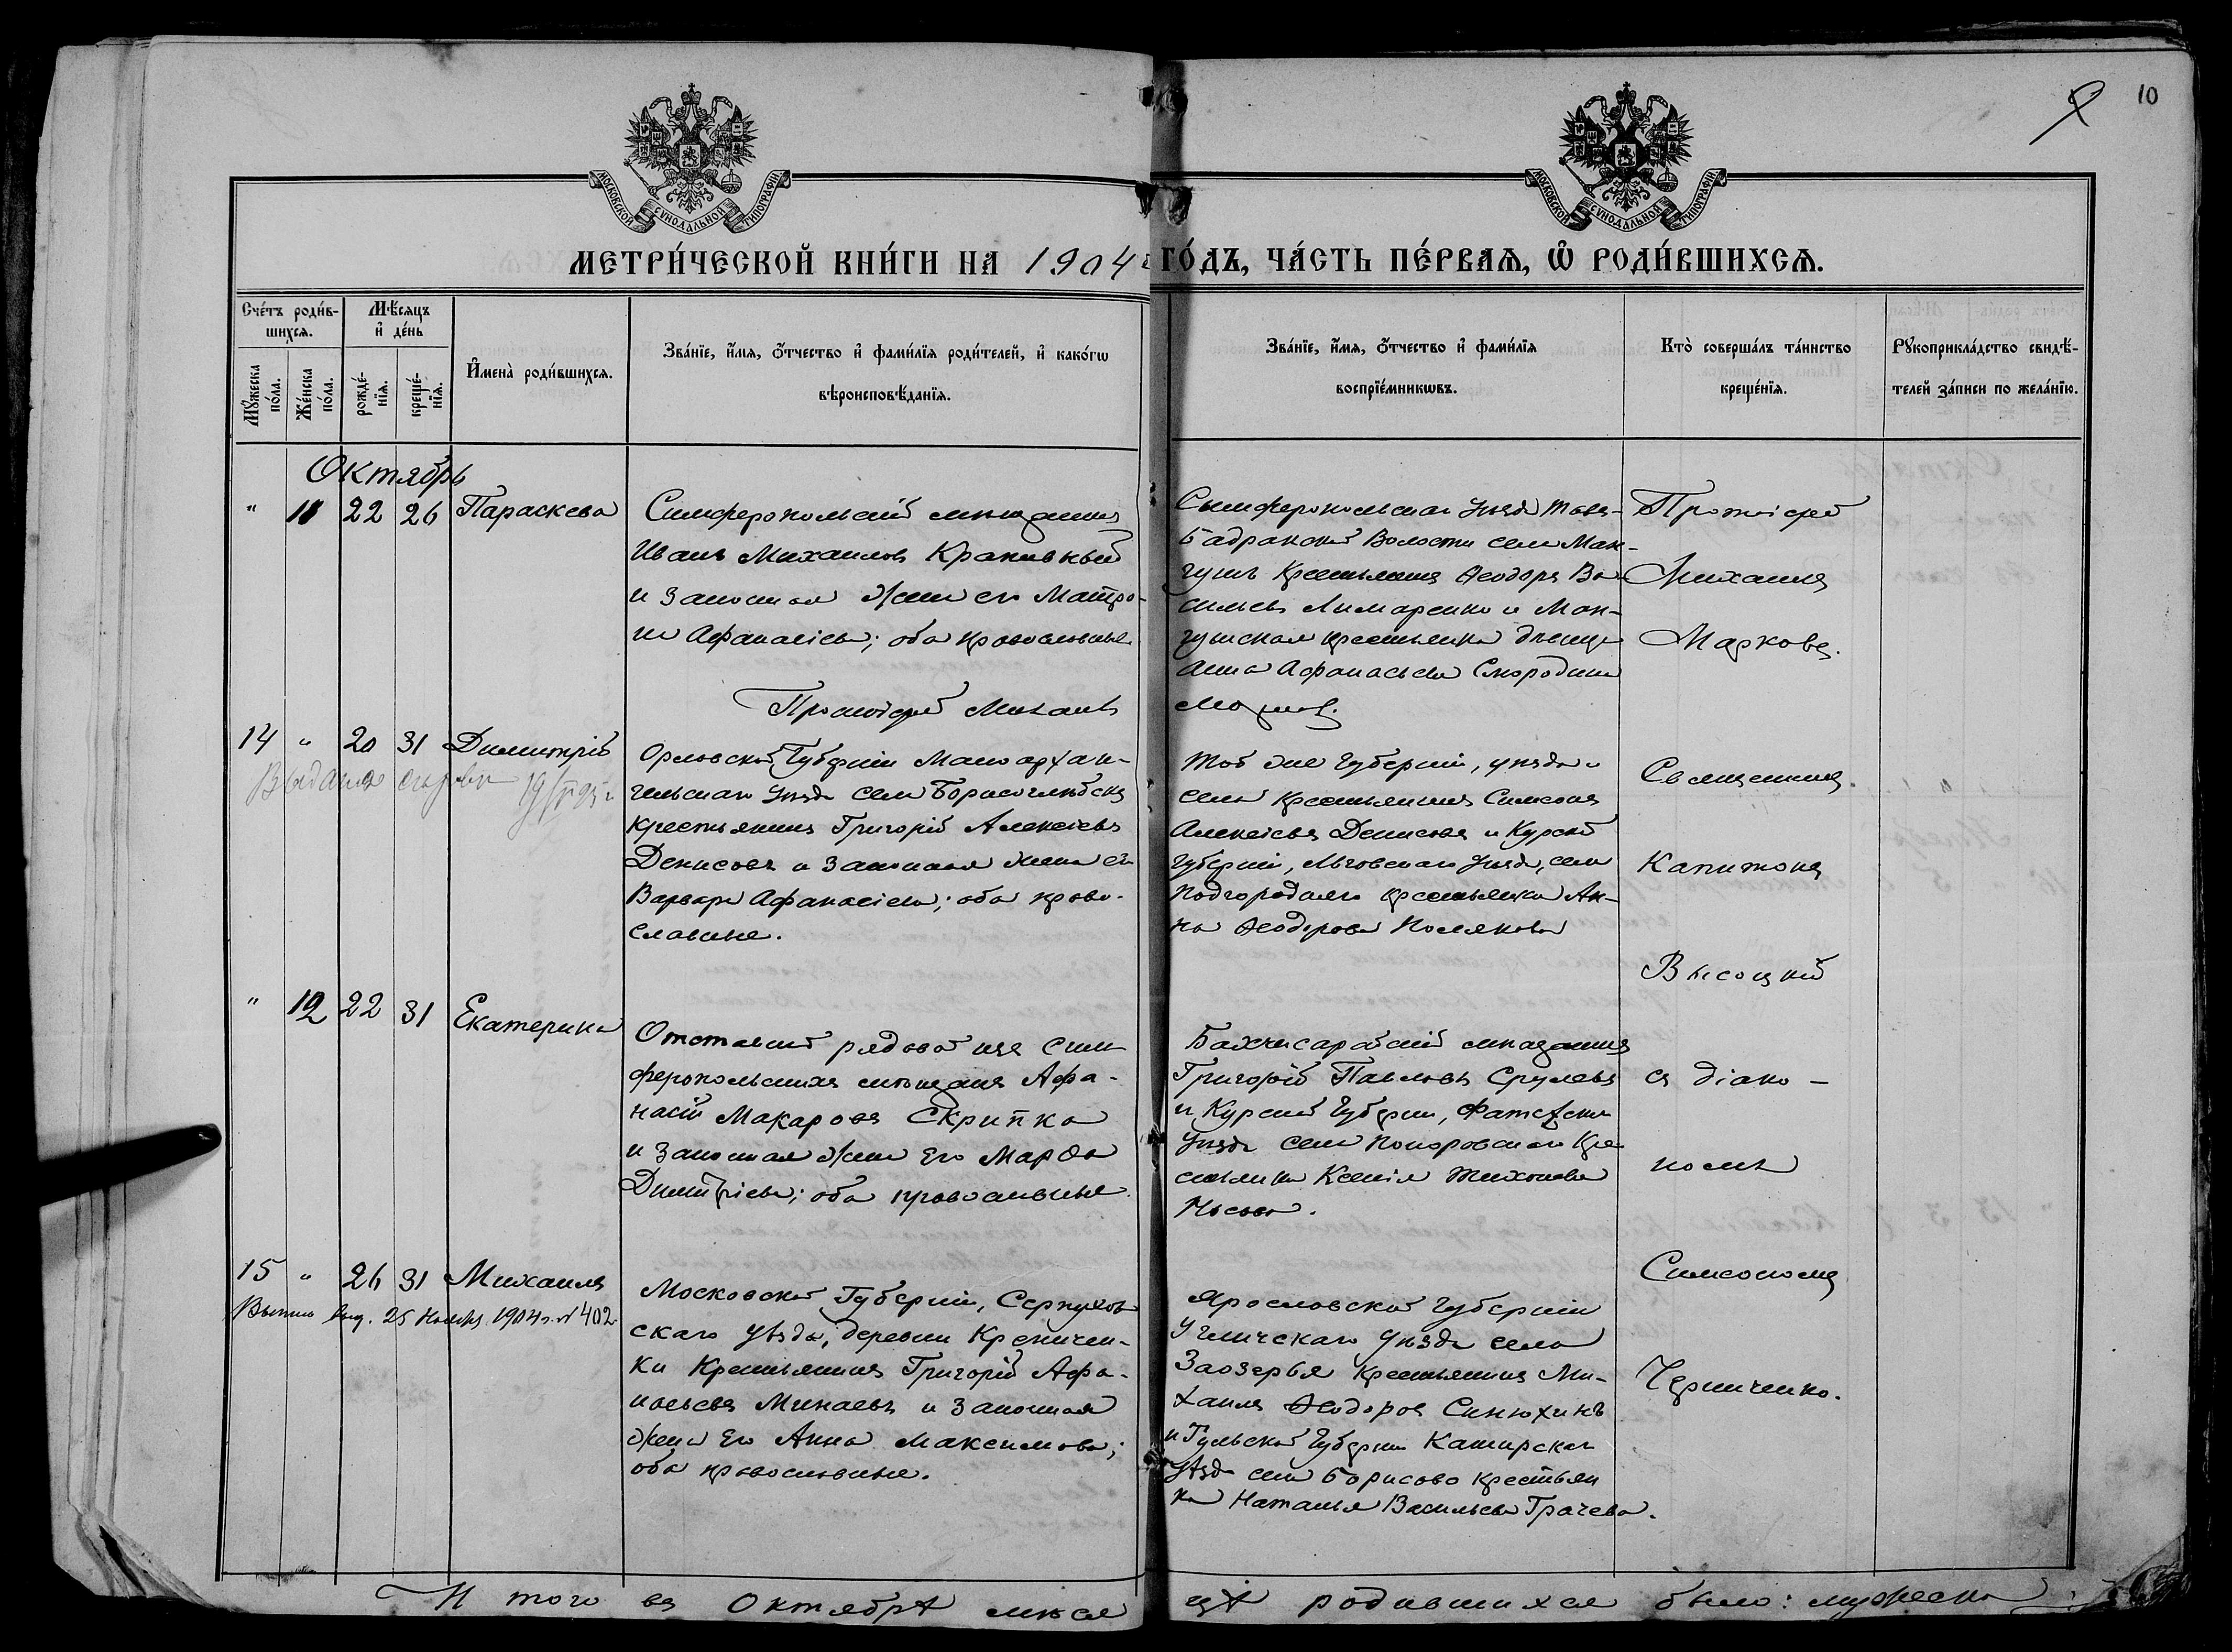 10
МОСКОВСКОЙ СУНОДАЛЬНОЙ ТИПОГРАФІИ
МОСКОВСКОЙ СУНОДАЛЬНОЙ ТИПОГРАФІИ
МЕТРИ́ЧЕСКОЙ КНИ́ГИ НА 1904 ГО́ДЪ, ЧА́СТЬ ПЕ́РВАЯ, Ѡ РОДИ́ВШИХСЯ.
Сче́тъ роди́в-
шихся.
Мꙋ́жеска по́ла.
Же́нска по́ла.
Мѣ́сяцъ и де́нь
рожде́-нїя.
креще́-нїя.
И҆мена̀ роди́вшихся.
Зва́нїе, и҆́мя, ѻ҆́тчество и҆ фами́лїя роди́телей, и҆ како́гѡ
вѣроисповѣ́данїя.
Зва́нїе, и҆́мя, ѻ҆́тчество и҆ фами́лїя
воспрїе́мникѡвъ.
Кто̀ соверша́лъ та́инство
креще́нїя.
Рꙋкоприкла́дство свидѣ́-
телей за́писи по жела́нїю.
Октябрь
" 11 22 26 Параскева
Симферопольскій мѣщанинъ
Иванъ Михаиловъ
и законная жена его Матро-
на Афанасіева; оба православные.
Симферопольскаго уѣзда Тава-
Бадракской Волости села Ман-
гушъ крестьянинъ Ѳеодоръ Ва-
сильевъ Лимаренко и Ман-
гушская крестьянка дѣвица
Анна Афанасьева
Протоіерей
Михаилъ
Марковъ.
Протоіерей Михаилъ
14 " 20 31 Димитрій
Выдана
Орловской Губерніи Малоархан-
гельскаго уѣзда села Борисоглѣбска
крестьянинъ Григорій Алексіевъ
Денисовъ и законная жена его
Варвара Афанасіева; оба право-
славные.
Той же губерніи, уѣзда и
села крестьянинъ Симеонъ
Алексіевъ Денисовъ и Курской
губерніи, Льговскаго уѣзда, села
крестьянка Ан-
на Ѳеодорова Полякова
Священникъ
Капитонъ
Высоцкій
" 12 22 31 Екатерина
Отставной рядовой изъ Сим-
феропольскихъ мѣщанъ Афа-
насій Макаровъ Скрипка
и законная жена его Марѳа
Димитріева; оба православные.
Бахчисарайскій мѣщанинъ
Григорій Павловъ
и Курской губерніи, Фатежскаго
уѣзда села кре-
стьянка Ксенія Тихонова
Носова.
съ діако-
номъ
Симеономъ
Черниченко.
15 " 26 31 Михаилъ
Выпись выд. 25 Ноября 1904 г. № 402.
Московской Губерніи, Серпухов-
скаго уѣзда, деревни
ки крестьянинъ Григорій Афа-
насьевъ Минаевъ и законная
жена его Анна Максимова;
оба православные.
Ярославской губерніи
Угличскаго уѣзда села
Заозерья крестьянинъ Ми-
хаилъ Ѳеодоровъ Синюхинъ
и Тульской губерніи Каширскаго
уѣзда села Борисово крестьян-
ка Наталья Васильева Грачева.
Итого въ Октябрѣ мѣся цѣ родившихся было: мужеска